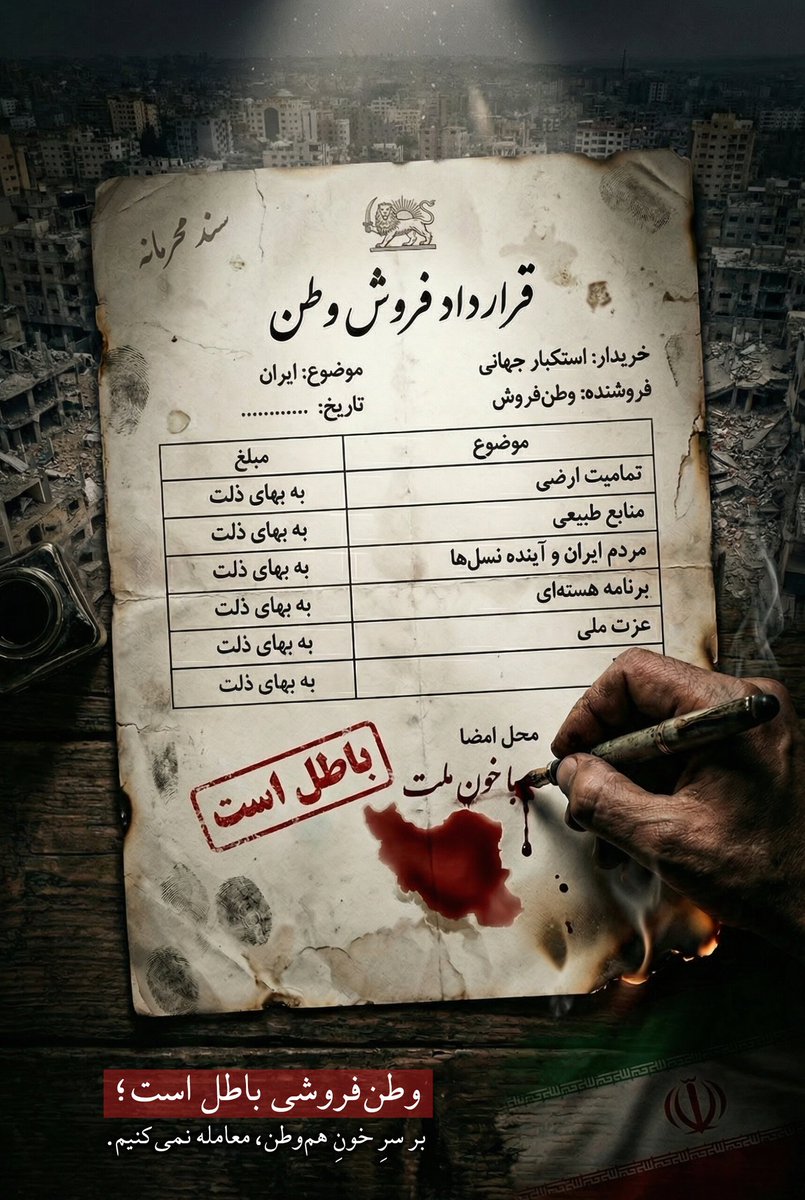 سند محرمانه
قرارداد فروش وطن
خریدار: استکبار جهانی
موضوع: ایران
فروشنده: وطن‌فروش
تاریخ: ............
موضوع
مبلغ
تمامیت ارضی
به بهای ذلت
منابع طبیعی
به بهای ذلت
مردم ایران و آینده نسل‌ها
به بهای ذلت
برنامه هسته‌ای
به بهای ذلت
عزت ملی
به بهای ذلت
به بهای ذلت
محل امضا
با خون ملت
باطل است
وطن‌فروشی باطل است؛
بر سرِ خونِ هم‌وطن، معامله نمی‌کنیم.